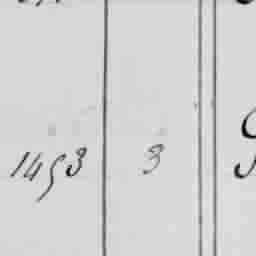 1453 3